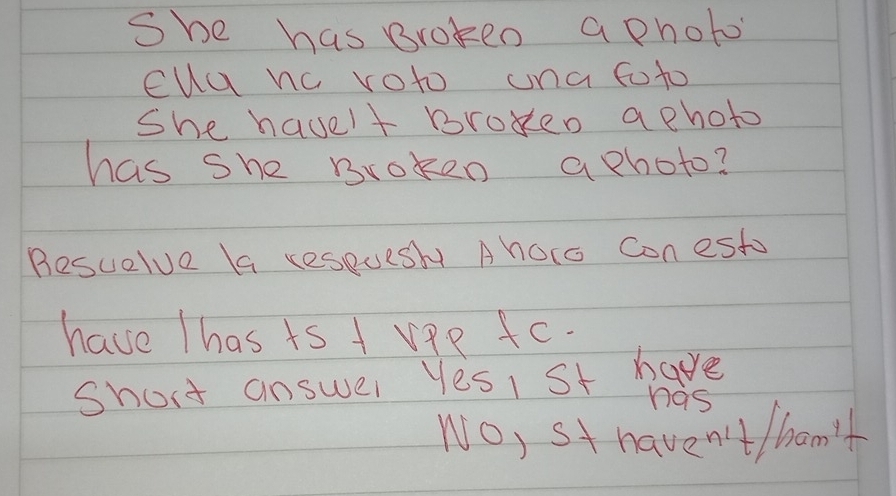 She has Broken a Photo
Ella ha roto una foto
She have't Broken a Photo
has She Broken a Photo?
Resuelve la respuesta Ahora con esto
have / has + s + VPP + c.
Short answer Yes, S + have
has
No, S + haven't / hasn't